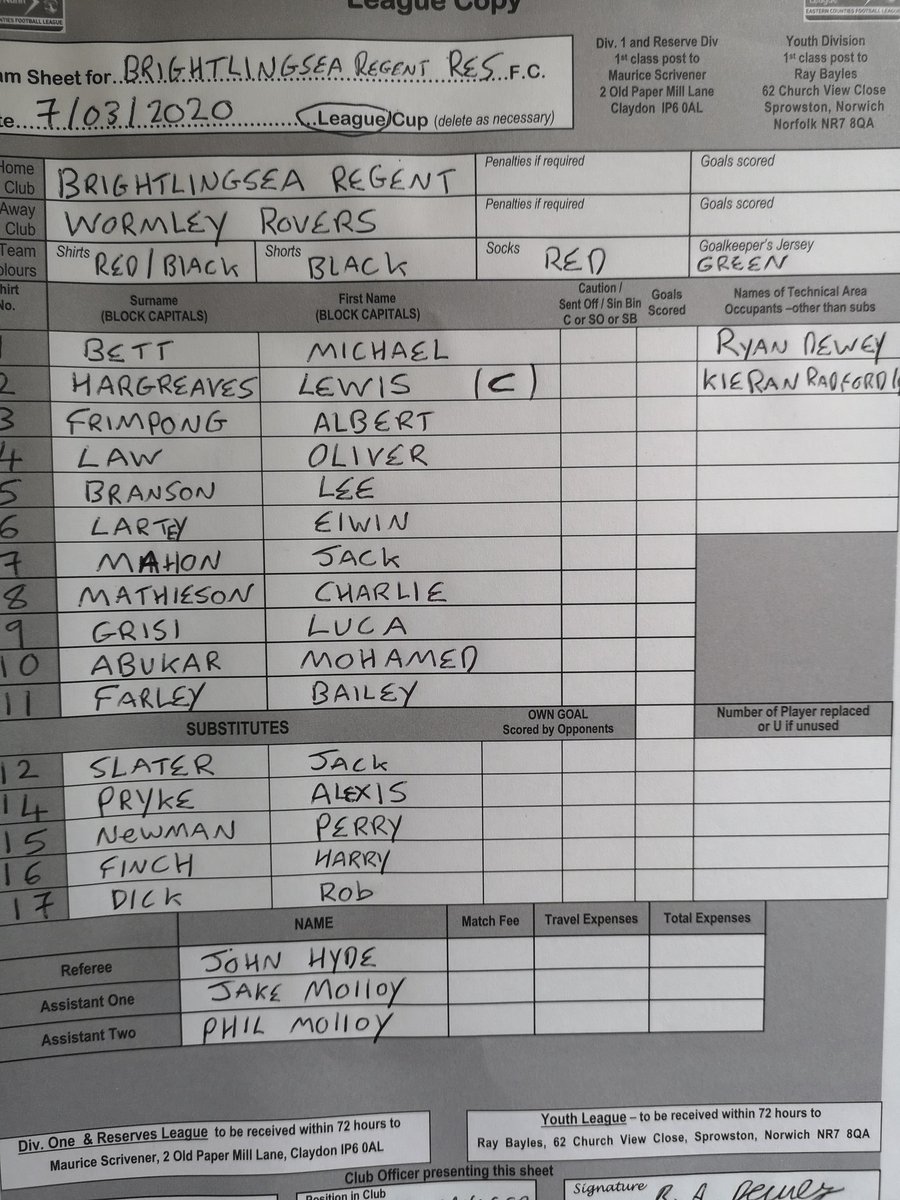 League Copy
TIES FOOTBALL LEAGUE
EASTERN COUNTIES FOOTBALL LEAGUE
am Sheet for BRIGHTLINGSEA REGENT RES F.C.
te 7/03/2020 League/Cup (delete as necessary)
Div. 1 and Reserve Div
1st class post to
Maurice Scrivener
2 Old Paper Mill Lane
Claydon IP6 0AL
Youth Division
1st class post to
Ray Bayles
62 Church View Close
Sprowston, Norwich
Norfolk NR7 8QA
Home Club BRIGHTLINGSEA REGENT Penalties if required Goals scored
Away Club WORMLEY ROVERS Penalties if required Goals scored
Team olours Shirts RED/BlACK Shorts BLACK Socks RED Goalkeeper's Jersey GREEN
hirt No. Surname (BLOCK CAPITALS) First Name (BLOCK CAPITALS) Caution / Sent Off / Sin Bin C or SO or SB Goals Scored Names of Technical Area Occupants –other than subs
1 BETT MICHAEL RYAN DEWEY
2 HARGREAVES LEWIS (C) KIERAN RADFORD
3 FRIMPONG ALBERT
4 LAW OLIVER
5 BRANSON LEE
6 LARTEY EIWIN
7 MAHON JACK
8 MATHIESON CHARLIE
9 GRISI LUCA
10 ABUKAR MOHAMED
11 FARLEY BAILEY
SUBSTITUTES OWN GOAL Scored by Opponents Number of Player replaced or U if unused
12 SLATER JACK
14 PRYKE ALEXIS
15 NEWMAN PERRY
16 FINCH HARRY
17 DICK Rob
NAME Match Fee Travel Expenses Total Expenses
Referee JOHN HYDE
Assistant One JAKE Molloy
Assistant Two PHIL Molloy
Div. One & Reserves League to be received within 72 hours to
Maurice Scrivener, 2 Old Paper Mill Lane, Claydon IP6 0AL
Youth League – to be received within 72 hours to
Ray Bayles, 62 Church View Close, Sprowston, Norwich NR7 8QA
Club Officer presenting this sheet
Position in Club
Signature R. A Dewey